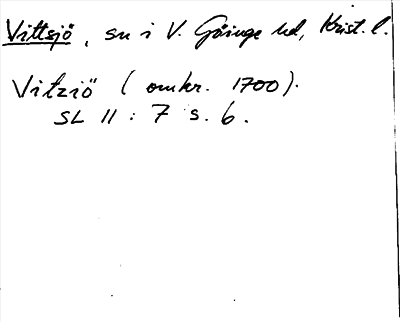 Vittsjö, sn i V. Göinge hd, Krist. l.
Vitziö (omkr. 1700).
SL 11 : 7 s. 6.